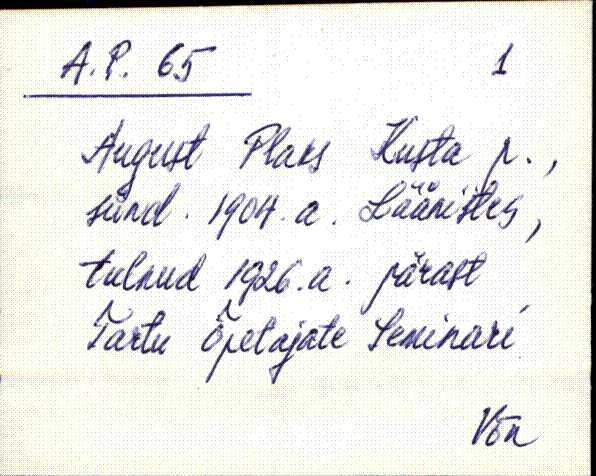 A. P. 65 1
August Plaks Kusta p.,
sünd. 1904. a. Läänistes,
tulnud 1926. a. pärast
Tartu Õpetajate Seminari
Võn